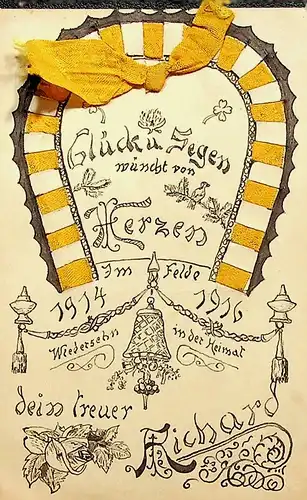 Glück u. Segen
wüncht von
Herzen
Im Felde
1914 1916
Wiedersehn in der Heimat
dein treuer
Richard